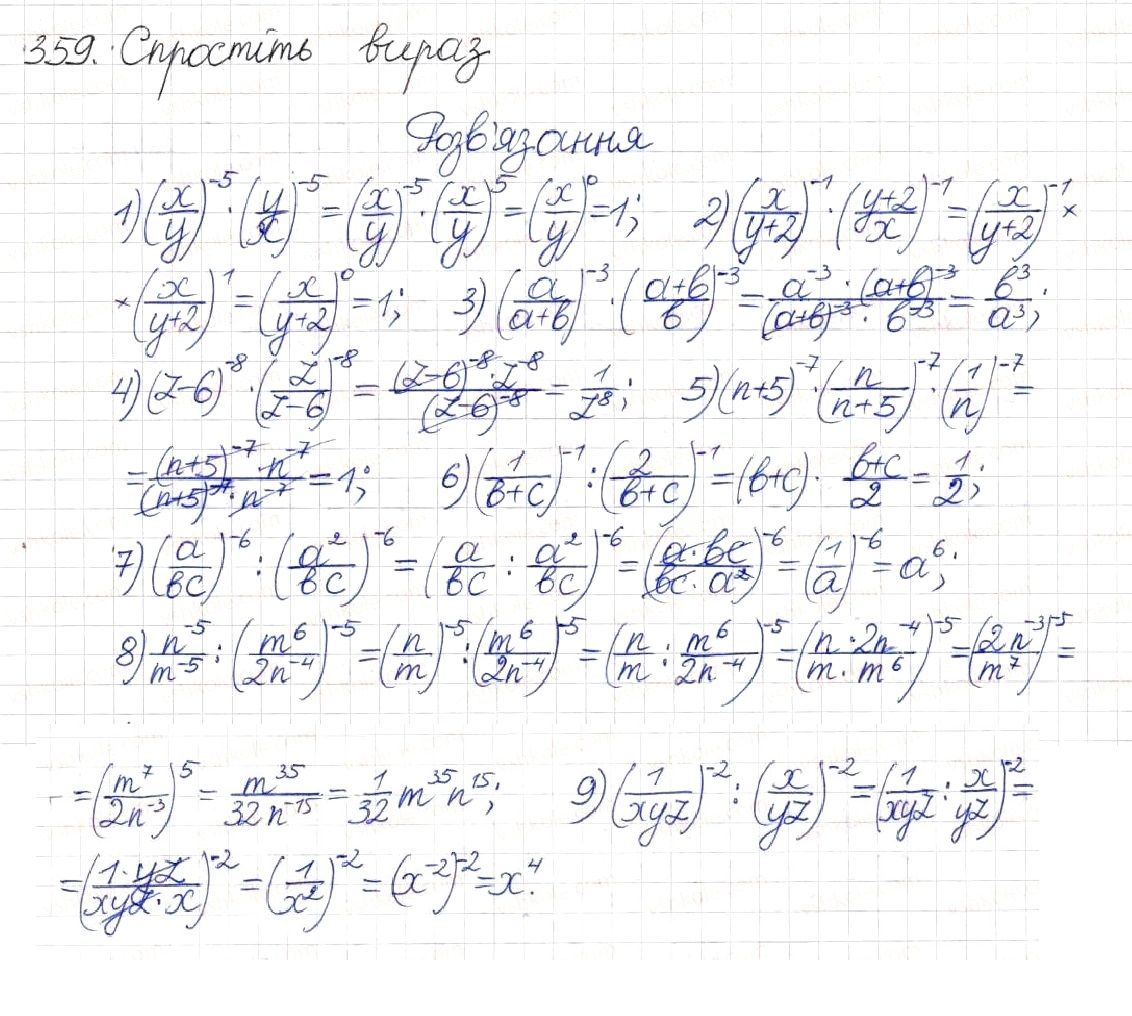 359. Спростіть вираз
Розв'язання
1) (x/y)^-5 · (y/x)^-5 = (x/y)^-5 · (x/y)^5 = (x/y)^0 = 1; 2) (x/(y+2))^-1 · ((y+2)/x)^-1 = (x/(y+2))^-1 ×
× (x/(y+2))^1 = (x/(y+2))^0 = 1; 3) (a/(a+b))^-3 · ((a+b)/b)^-3 = (a^-3 · (a+b)^-3)/((a+b)^-3 · b^-3) = b^3/a^3;
4) (z-6)^-8 · (z/(z-6))^-8 = ((z-6)^-8 · z^-8)/((z-6)^-8) = 1/z^8; 5) (n+5)^-7 · (n/(n+5))^-7 · (1/n)^-7 =
= ((n+5)^-7 · n^-7)/((n+5)^-7 · n^-7) = 1; 6) (1/(b+c))^-1 : (2/(b+c))^-1 = (b+c) · (b+c)/2 = 1/2;
7) (a/(bc))^-6 : (a^2/(bc))^-6 = (a/(bc) : a^2/(bc))^-6 = ((a · bc)/(bc · a^2))^-6 = (1/a)^-6 = a^6;
8) n^-5/m^-5 : (m^6/(2n^-4))^-5 = (n/m)^-5 : (m^6/(2n^-4))^-5 = (n/m : m^6/(2n^-4))^-5 = ((n · 2n^-4)/(m · m^6))^-5 = (2n^-3/m^7)^-5 =
= (m^7/(2n^-3))^5 = m^35/(32n^-15) = 1/32 m^35 n^15; 9) (1/(xyz))^-2 : (x/(yz))^-2 = (1/(xyz) : x/(yz))^-2 =
= ((1 · yz)/(xyz · x))^-2 = (1/x^2)^-2 = (x^-2)^-2 = x^4.